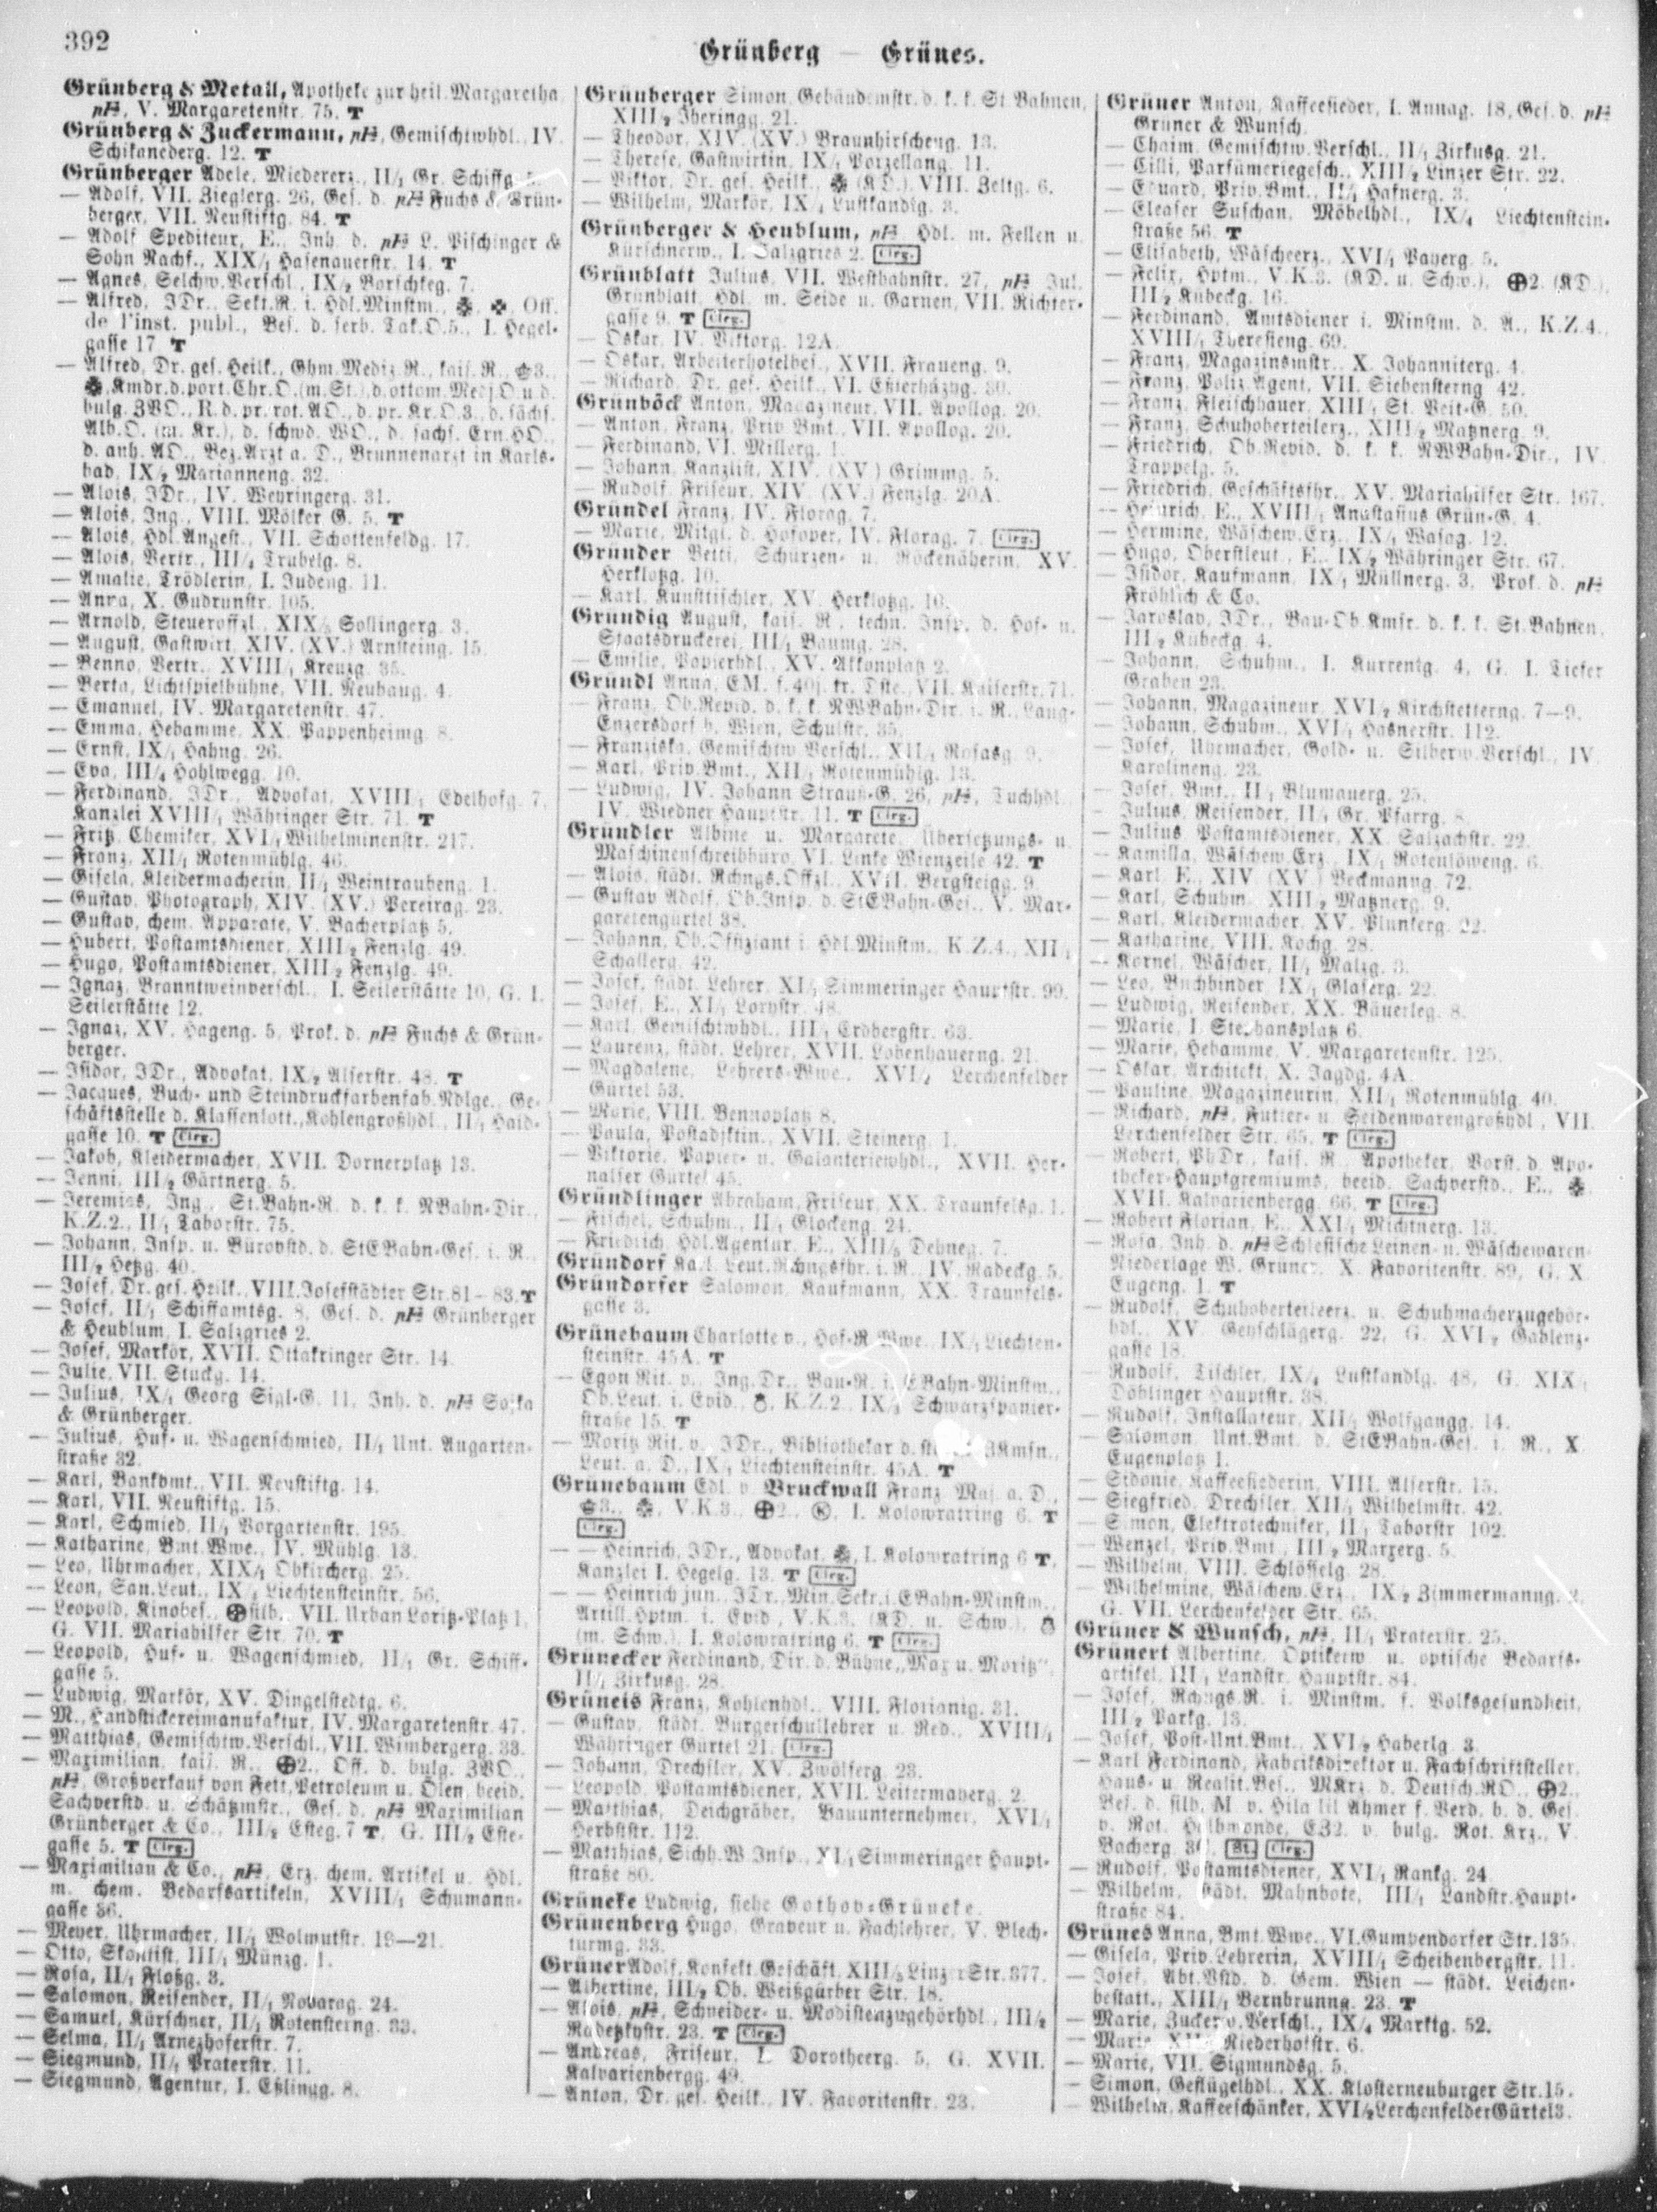 392
Grünberg — Grünes.
Grünberg & Metall, Apotheke zur heil. Margaretha,
pH, V. Margaretenstr. 75. T
Grünberg & Zuckermann, pH, Gemischtwhdl., IV.
Schikanederg. 12. T
Grünberger Adele, Miedererz., II/1 Gr. Schiffg.
— Adolf, VII. Zieglerg. 26, Ges. d. pH Fuchs & Grün-
berger, VII. Neustiftg. 84. T
— Adolf Spediteur, E., Inh. d. pH L. Pischinger &
Sohn Nachf., XIX/1 Hasenauerstr. 14. T
— Agnes, Selchw.Verschl., IX/2 Borschkeg. 7.
— Alfred, JDr., Sekt.R. i. Hdl.Minstm., Off.
de l'inst. publ., Bes. d. serb. Tak.O.5., I. Hegel-
gasse 17 T
— Alfred, Dr. ges. Heilk., Ghm.Mediz.R., kais. R., 3.,
Kmdr.d.port.Chr.O.(m.St.),d.ottom.Medj.O.u.d.
bulg. ZVO., R.d.pr.rot. AO., d. pr. Kr.O.3., d. sächs.
Alb.O. (m. Kr.), d. schwd. WO., d. sachs. Ern.HO.,
d. anh. AO., Bez.Arzt a. D., Brunnenarzt in Karls-
bad, IX/2 Marianneng. 32.
— Alois, JDr., IV. Weyringerg. 31.
— Alois, Ing., VIII. Mölker G. 5. T
— Alois, Hdl.Angest., VII. Schottenfeldg. 17.
— Alois, Vertr., III/4 Trubelg. 8.
— Amalie, Trödlerin, I. Judeng. 11.
— Anna, X. Gudrunstr. 105.
— Arnold, Steueroffzl., XIX/5 Sollingerg. 3.
— August, Gastwirt, XIV. (XV.) Arnsteing. 15.
— Benno, Vertr., XVIII/1 Kreuzg. 35.
— Berta, Lichtspielbühne, VII. Neubaug. 4.
— Emanuel, IV. Margaretenstr. 47.
— Emma, Hebamme, XX. Pappenheimg. 8.
— Ernst, IX/1 Hahng. 26.
— Eva, III/4 Hohlwegg. 10.
— Ferdinand, JDr., Advokat, XVIII/1 Edelhofg. 7,
Kanzlei XVIII/1 Währinger Str. 71. T
— Fritz, Chemiker, XVI/1 Wilhelminenstr. 217.
— Franz, XII/1 Rotenmühlg. 46.
— Gisela, Kleidermacherin, II/1 Weintraubeng. 1.
— Gustav, Photograph, XIV. (XV.) Pereirag. 23.
— Gustav, chem. Apparate, V. Bacherplatz 5.
— Hubert, Postamtsdiener, XIII/2 Fenzlg. 49.
— Hugo, Postamtsdiener, XIII/2 Fenzlg. 49.
— Ignaz, Branntweinverschl., I. Seilerstätte 10, G. I.
Seilerstätte 12.
— Ignaz, XV. Hageng. 5, Prok. d. pH Fuchs & Grün-
berger.
— Isidor, JDr., Advokat, IX/2 Alserstr. 48. T
— Jacques, Buch- und Steindruckfarbenfab.Ndlge., Ge-
schäftsstelle d. Klassenlott., Kohlengroßhdl., II/1 Haid-
gasse 10. T Clrg.
— Jakob, Kleidermacher, XVII. Dornerplatz 13.
— Jenni, III/2 Gärtnerg. 5.
— Jeremias, Ing., St.Bahn-R. d. k. k. NBahn-Dir.,
K.Z.2., II/1 Taborstr. 75.
— Johann, Insp. u. Bürovstd. d. StEBahn-Ges. i. R.,
III/2 Hetzg. 40.
— Josef, Dr. ges. Heilk., VIII. Josefstädter Str. 81–83. T
— Josef, II/1 Schiffamtsg. 8, Ges. d. pH Grünberger
& Heublum, I. Salzgries 2.
— Josef, Markör, XVII. Ottakringer Str. 14.
— Julie, VII. Stuckg. 14.
— Julius, IX/1 Georg Sigl-G. 11, Inh. d. pH Sojka
& Grünberger.
— Julius, Huf- u. Wagenschmied, II/1 Unt. Augarten-
straße 32.
— Karl, Bankbmt., VII. Neustiftg. 14.
— Karl, VII. Neustiftg. 15.
— Karl, Schmied, II/1 Vorgartenstr. 195.
— Katharine, Bmt.Wwe., IV. Mühlg. 13.
— Leo, Uhrmacher, XIX/1 Obkircherg. 25.
— Leon, San.Leut., IX/1 Liechtensteinstr. 56.
— Leopold, Kinobes., silb., VII. Urban Loritz-Platz 1,
G. VII. Mariahilfer Str. 70. T
— Leopold, Huf- u. Wagenschmied, II/1 Gr. Schiff-
gasse 5.
— Ludwig, Markör, XV. Dingelstedtg. 6.
— M., Handstickereimanufaktur, IV. Margaretenstr. 47.
— Matthias, Gemischtw.Verschl., VII. Wimbergerg. 33.
— Maximilian, kais. R., 2., Off. d. bulg. ZVO.,
pH, Großverkauf von Fett, Petroleum u. Ölen, beeid.
Sachverstd. u. Schätzmstr., Ges. d. pH Maximilian
Grünberger & Co., III/2 Esteg. 7 T, G. III/2 Este-
gasse 5. T Clrg.
— Maximilian & Co., pH, Erz. chem. Artikel u. Hdl.
m. chem. Bedarfsartikeln, XVIII/1 Schumann-
gasse 36.
— Meyer, Uhrmacher, II/1 Wolmutstr. 19—21.
— Otto, Skontist, III/1 Münzg. 1.
— Rosa, II/1 Floßg. 3.
— Salomon, Reisender, II/1 Novarag. 24.
— Samuel, Kürschner, II/1 Rotensterng. 33.
— Selma, II/1 Arnezhoferstr. 7.
— Siegmund, II/1 Praterstr. 11.
— Siegmund, Agentur, I. Eßlingg. 8.
Grünberger Simon, Gebäudemstr. d. k. k. St.Bahnen,
XIII/2 Iheringg. 21.
— Theodor, XIV. (XV.) Braunhirscheng. 13.
— Therese, Gastwirtin, IX/1 Porzellang. 11.
— Viktor, Dr. ges. Heilk., (KD.), VIII. Zeltg. 6.
— Wilhelm, Markör, IX/4 Lustkandlg. 3.
Grünberger & Heublum, pH, Hdl. m. Fellen u.
Kürschnerw., I. Salzgries 2. Clrg.
Grünblatt Julius, VII. Westbahnstr. 27, pH Jul.
Grünblatt, Hdl. m. Seide u. Garnen, VII. Richter-
gasse 9. T Clrg.
— Oskar, IV. Viktorg. 12A.
— Oskar, Arbeiterhotelbes., XVII. Fraueng. 9.
— Richard, Dr. ges. Heilk., VI. Eßterházyg. 30.
Grünböck Anton, Magazineur, VII. Apollog. 20.
— Anton, Franz, Priv.Bmt., VII. Apollog. 20.
— Ferdinand, VI. Millerg. 1.
— Johann, Kanzlist, XIV. (XV.) Grimmg. 5.
— Rudolf, Friseur, XIV. (XV.) Fenzlg. 20A.
Gründel Franz, IV. Florag. 7.
— Marie, Mitgl. d. Hofoper, IV. Florag. 7. Clrg.
Gründer Betti, Schürzen- u. Röckenäherin, XV.
Herklotzg. 10.
— Karl, Kunsttischler, XV. Herklotzg. 10.
Gründig August, kais. R., techn. Insp. d. Hof- u.
Staatsdruckerei, III/1 Baumg. 28.
— Emilie, Papierhdl., XV. Akkonplatz 2.
Gründl Anna, EM. f. 40j. tr. Dste., VII. Kaiserstr. 71.
— Franz, Ob.Revid. d. k. k. NWBahn-Dir. i. R., Lang-
Enzersdorf b. Wien, Schulstr. 35.
— Franziska, Gemischtw.Verschl., XII/1 Rosasg. 9.
— Karl, Priv.Bmt., XII/1 Rotenmühlg. 13.
— Ludwig, IV. Johann Strauß-G. 26, pH, Tuchhdl.,
IV. Wiedner Hauptstr. 11. T Clrg.
Gründler Albine u. Margarete, Übersetzungs- u.
Maschinenschreibbüro, VI. Linke Wienzeile 42. T
— Alois, städt. Rchngs.Offzl., XVII. Bergsteigg. 9.
— Gustav Adolf, Ob.Insp. d. StEBahn-Ges., V. Mar-
garetengürtel 38.
— Johann, Ob.Offiziant i. Hdl.Minstm., K.Z.4., XII/1
Schallerg. 42.
— Josef, städt. Lehrer, XI/1 Simmeringer Hauptstr. 99.
— Josef, E., XI/1 Lorystr. 48.
— Karl, Gemischtwhdl., III/1 Erdbergstr. 63.
— Laurenz, städt. Lehrer, XVII. Lobenhauerng. 21.
— Magdalene, Lehrers-Wwe., XVI/2 Lerchenfelder
Gürtel 53.
— Marie, VIII. Bennoplatz 8.
— Paula, Postadjktin., XVII. Steinerg. 1.
— Viktorie, Papier- u. Galanteriewhdl., XVII. Her-
nalser Gürtel 45.
Gründlinger Abraham, Friseur, XX. Traunfelsg. 1.
— Fischel, Schuhm., II/1 Glockeng. 24.
— Friedrich, Hdl.Agentur, E., XIII/5 Dehneg. 7.
Gründorf Karl, Leut.Rchngsfhr. i. R., IV. Radeckg. 5.
Gründorfer Salomon, Kaufmann, XX. Traunfels-
gasse 3.
Grünebaum Charlotte v., Hof-R.Wwe., IX/1 Liechten-
steinstr. 45A. T
— Egon Rit. v., Ing.Dr., Bau-R. i. EBahn-Minstm.,
Ob.Leut. i. Evid., K.Z.2., IX/3 Schwarzspanier-
straße 15. T
— Moritz Rit. v., JDr., Bibliothekar d.
Leut. a. D., IX/1 Liechtensteinstr. 45A. T
Grünebaum Edl. v. Bruckwall Franz, Maj. a. D.,
3., V.K.3., 2., I. Kolowratring 6. T
Clrg.
— — Heinrich, JDr., Advokat, I. Kolowratring 6 T,
Kanzlei I. Hegelg. 13. T Clrg.
— — Heinrich jun., JDr., Min.Sekr. i. EBahn-Minstm.,
Artill.Hptm. i. Evid., V.K.3. (KD. u. Schw.),
(m. Schw.), I. Kolowratring 6. T Clrg.
Grünecker Ferdinand, Dir. d. Bühne „Max u. Moritz",
II/1 Zirkusg. 28.
Grüneis Franz, Kohlenhdl., VIII. Florianig. 31.
— Gustav, städt. Bürgerschullehrer u. Red., XVIII/1
Währinger Gürtel 21. Clrg.
— Johann, Drechsler, XV. Zwölferg. 23.
— Leopold, Postamtsdiener, XVII. Leitermayerg. 2.
— Matthias, Deichgräber, Bauunternehmer, XVI/1
Herbststr. 112.
— Matthias, Sichh.W.Insp., XI/1 Simmeringer Haupt-
straße 80.
Grüneke Ludwig, siehe Gothov-Grüneke.
Grünenberg Hugo, Graveur u. Fachlehrer, V. Blech-
turmg. 33.
Grüner Adolf, Konfekt.Geschäft, XIII/5 Linzer Str. 377.
— Albertine, III/2 Ob. Weißgärber Str. 18.
— Alois, pH, Schneider- u. Modistenzugehörhdl., III/2
Radetzkystr. 23. T Clrg.
— Andreas, Friseur, I. Dorotheerg. 5, G. XVII.
Kalvarienbergg. 49.
— Anton, Dr. ges. Heilk., IV. Favoritenstr. 23.
Grüner Anton, Kaffeesieder, I. Annag. 18, Ges. d. pH
Grüner & Wunsch.
— Chaim, Gemischtw.Verschl., II/1 Zirkusg. 21.
— Cilli, Parfümeriegesch., XIII/2 Linzer Str. 22.
— Eduard, Priv.Bmt., II/1 Hafnerg. 3.
— Eleaser Suschan, Möbelhdl., IX/4 Liechtenstein-
straße 56. T
— Elisabeth, Wäscheerz., XVI/1 Payerg. 5.
— Felix, Hptm., V.K.3. (KD. u. Schw.), 2. (KD.),
III/2 Kübeckg. 16.
— Ferdinand, Amtsdiener i. Minstm. d. A., K.Z.4.,
XVIII/1 Theresieng. 69.
— Franz, Magazinsmstr., X. Johanniterg. 4.
— Franz, Poliz.Agent, VII. Siebensterng. 42.
— Franz, Fleischhauer, XIII/1 St. Veit-G. 50.
— Franz, Schuhoberteilerz., XIII/2 Matznerg. 9.
— Friedrich, Ob.Revid. d. k. k. NWBahn-Dir., IV.
Trappelg. 5.
— Friedrich, Geschäftsfhr., XV. Mariahilfer Str. 167.
— Heinrich, E., XVIII/1 Anastasius Grün-G. 4.
— Hermine, Wäschew.Erz., IX/1 Wasag. 12.
— Hugo, Oberstleut., E., IX/2 Währinger Str. 67.
— Isidor, Kaufmann, IX/1 Müllnerg. 3, Prok. d. pH
Fröhlich & Co.
— Jaroslav, JDr., Bau-Ob.Kmsr. d. k. k. St.Bahnen,
III/2 Kübeckg. 4.
— Johann, Schuhm., I. Kurrentg. 4, G. I. Tiefer
Graben 23.
— Johann, Magazineur, XVI/2 Kirchstetterng. 7—9.
— Johann, Schuhm., XVI/1 Hasnerstr. 112.
— Josef, Uhrmacher, Gold- u. Silberw.Verschl., IV.
Karolineng. 23.
— Josef, Bmt., II/1 Blumauerg. 25.
— Julius, Reisender, II/1 Gr. Pfarrg. 8.
— Julius, Postamtsdiener, XX. Salzachstr. 22.
— Kamilla, Wäschew.Erz., IX/1 Rotenlöweng. 6.
— Karl, E., XIV. (XV.) Beckmanng. 72.
— Karl, Schuhm., XIII/2 Matznerg. 9.
— Karl, Kleidermacher, XV. Plunkerg. 22.
— Katharine, VIII. Kochg. 28.
— Kornel, Wäscher, II/1 Malzg. 3.
— Leo, Buchbinder, IX/1 Glaserg. 22.
— Ludwig, Reisender, XX. Bäuerleg. 8.
— Marie, I. Stephansplatz 6.
— Marie, Hebamme, V. Margaretenstr. 125.
— Oskar, Architekt, X. Jagdg. 4A.
— Pauline, Magazineurin, XII/1 Rotenmühlg. 40.
— Richard, pH, Futter- u. Seidenwarengroßhdl., VII.
Lerchenfelder Str. 65. T Clrg.
— Robert, PhDr., kais. R., Apotheker, Vorst. d. Apo-
theker-Hauptgremiums, beeid. Sachverstd., E.,
XVII. Kalvarienbergg. 66. T Clrg.
— Robert Florian, E., XXI/1 Michtnerg. 13.
— Rosa, Inh. d. pH Schlesische Leinen- u. Wäschewaren-
Niederlage W. Grüner, X. Favoritenstr. 89, G. X.
Eugeng. 1. T
— Rudolf, Schuhoberteileerz. u. Schuhmacherzugehör-
hdl., XV. Geyschlägerg. 22, G. XVI/2 Gablenz-
gasse 18.
— Rudolf, Tischler, IX/4 Lustkandlg. 48, G. XIX/1
Döblinger Hauptstr. 38.
— Rudolf, Installateur, XII/1 Wolfgangg. 14.
— Salomon, Unt.Bmt. d. StEBahn-Ges. i. R., X.
Eugenplatz 1.
— Sidonie, Kaffeesiederin, VIII. Alserstr. 15.
— Siegfried, Drechsler, XII/1 Wilhelmstr. 42.
— Simon, Elektrotechniker, II/1 Taborstr. 102.
— Wenzel, Priv.Bmt., III/2 Marxerg. 5.
— Wilhelm, VIII. Schlösselg. 28.
— Wilhelmine, Wäschew.Erz., IX/2 Zimmermanng. 2,
G. VII. Lerchenfelder Str. 65.
Grüner & Wunsch, pH, II/1 Praterstr. 25.
Grünert Albertine, Optikerw. u. optische Bedarfs-
artikel, III/1 Landstr. Hauptstr. 84.
— Josef, Rchngs.R. i. Minstm. f. Volksgesundheit,
III/2 Parkg. 13.
— Josef, Post-Unt.Bmt., XVI/2 Haberlg. 3.
— Karl Ferdinand, Fabriksdirektor u. Fachschriftsteller,
Haus- u. Realit.Bes., MKrz. d. Deutsch.RO., 2.,
Bes. d. silb. M. v. Hila lil Ahmer f. Verd. b. d. Ges.
v. Rot. Halbmonde, E32. v. bulg. Rot. Krz., V.
Bacherg. St. Clrg.
— Rudolf, Postamtsdiener, XVI/1 Rankg. 24.
— Wilhelm, städt. Mahnbote, III/1 Landstr.Haupt-
straße 84.
Grünes Anna, Bmt.Wwe., VI. Gumpendorfer Str. 135.
— Gisela, Priv.Lehrerin, XVIII/1 Scheibenbergstr. 11.
— Josef, Abt.Vstd. d. Gem. Wien — städt. Leichen-
bestatt., XIII/1 Bernbrunng. 23. T
— Marie, Zuckerw.Verschl., IX/4 Marktg. 52.
— Marie, Riederhofstr. 6.
— Marie, VII. Sigmundsg. 5.
— Simon, Geflügelhdl., XX. Klosterneuburger Str. 15.
— Wilhelm, Kaffeeschänker, XVI/2 Lerchenfelder Gürtel 3.